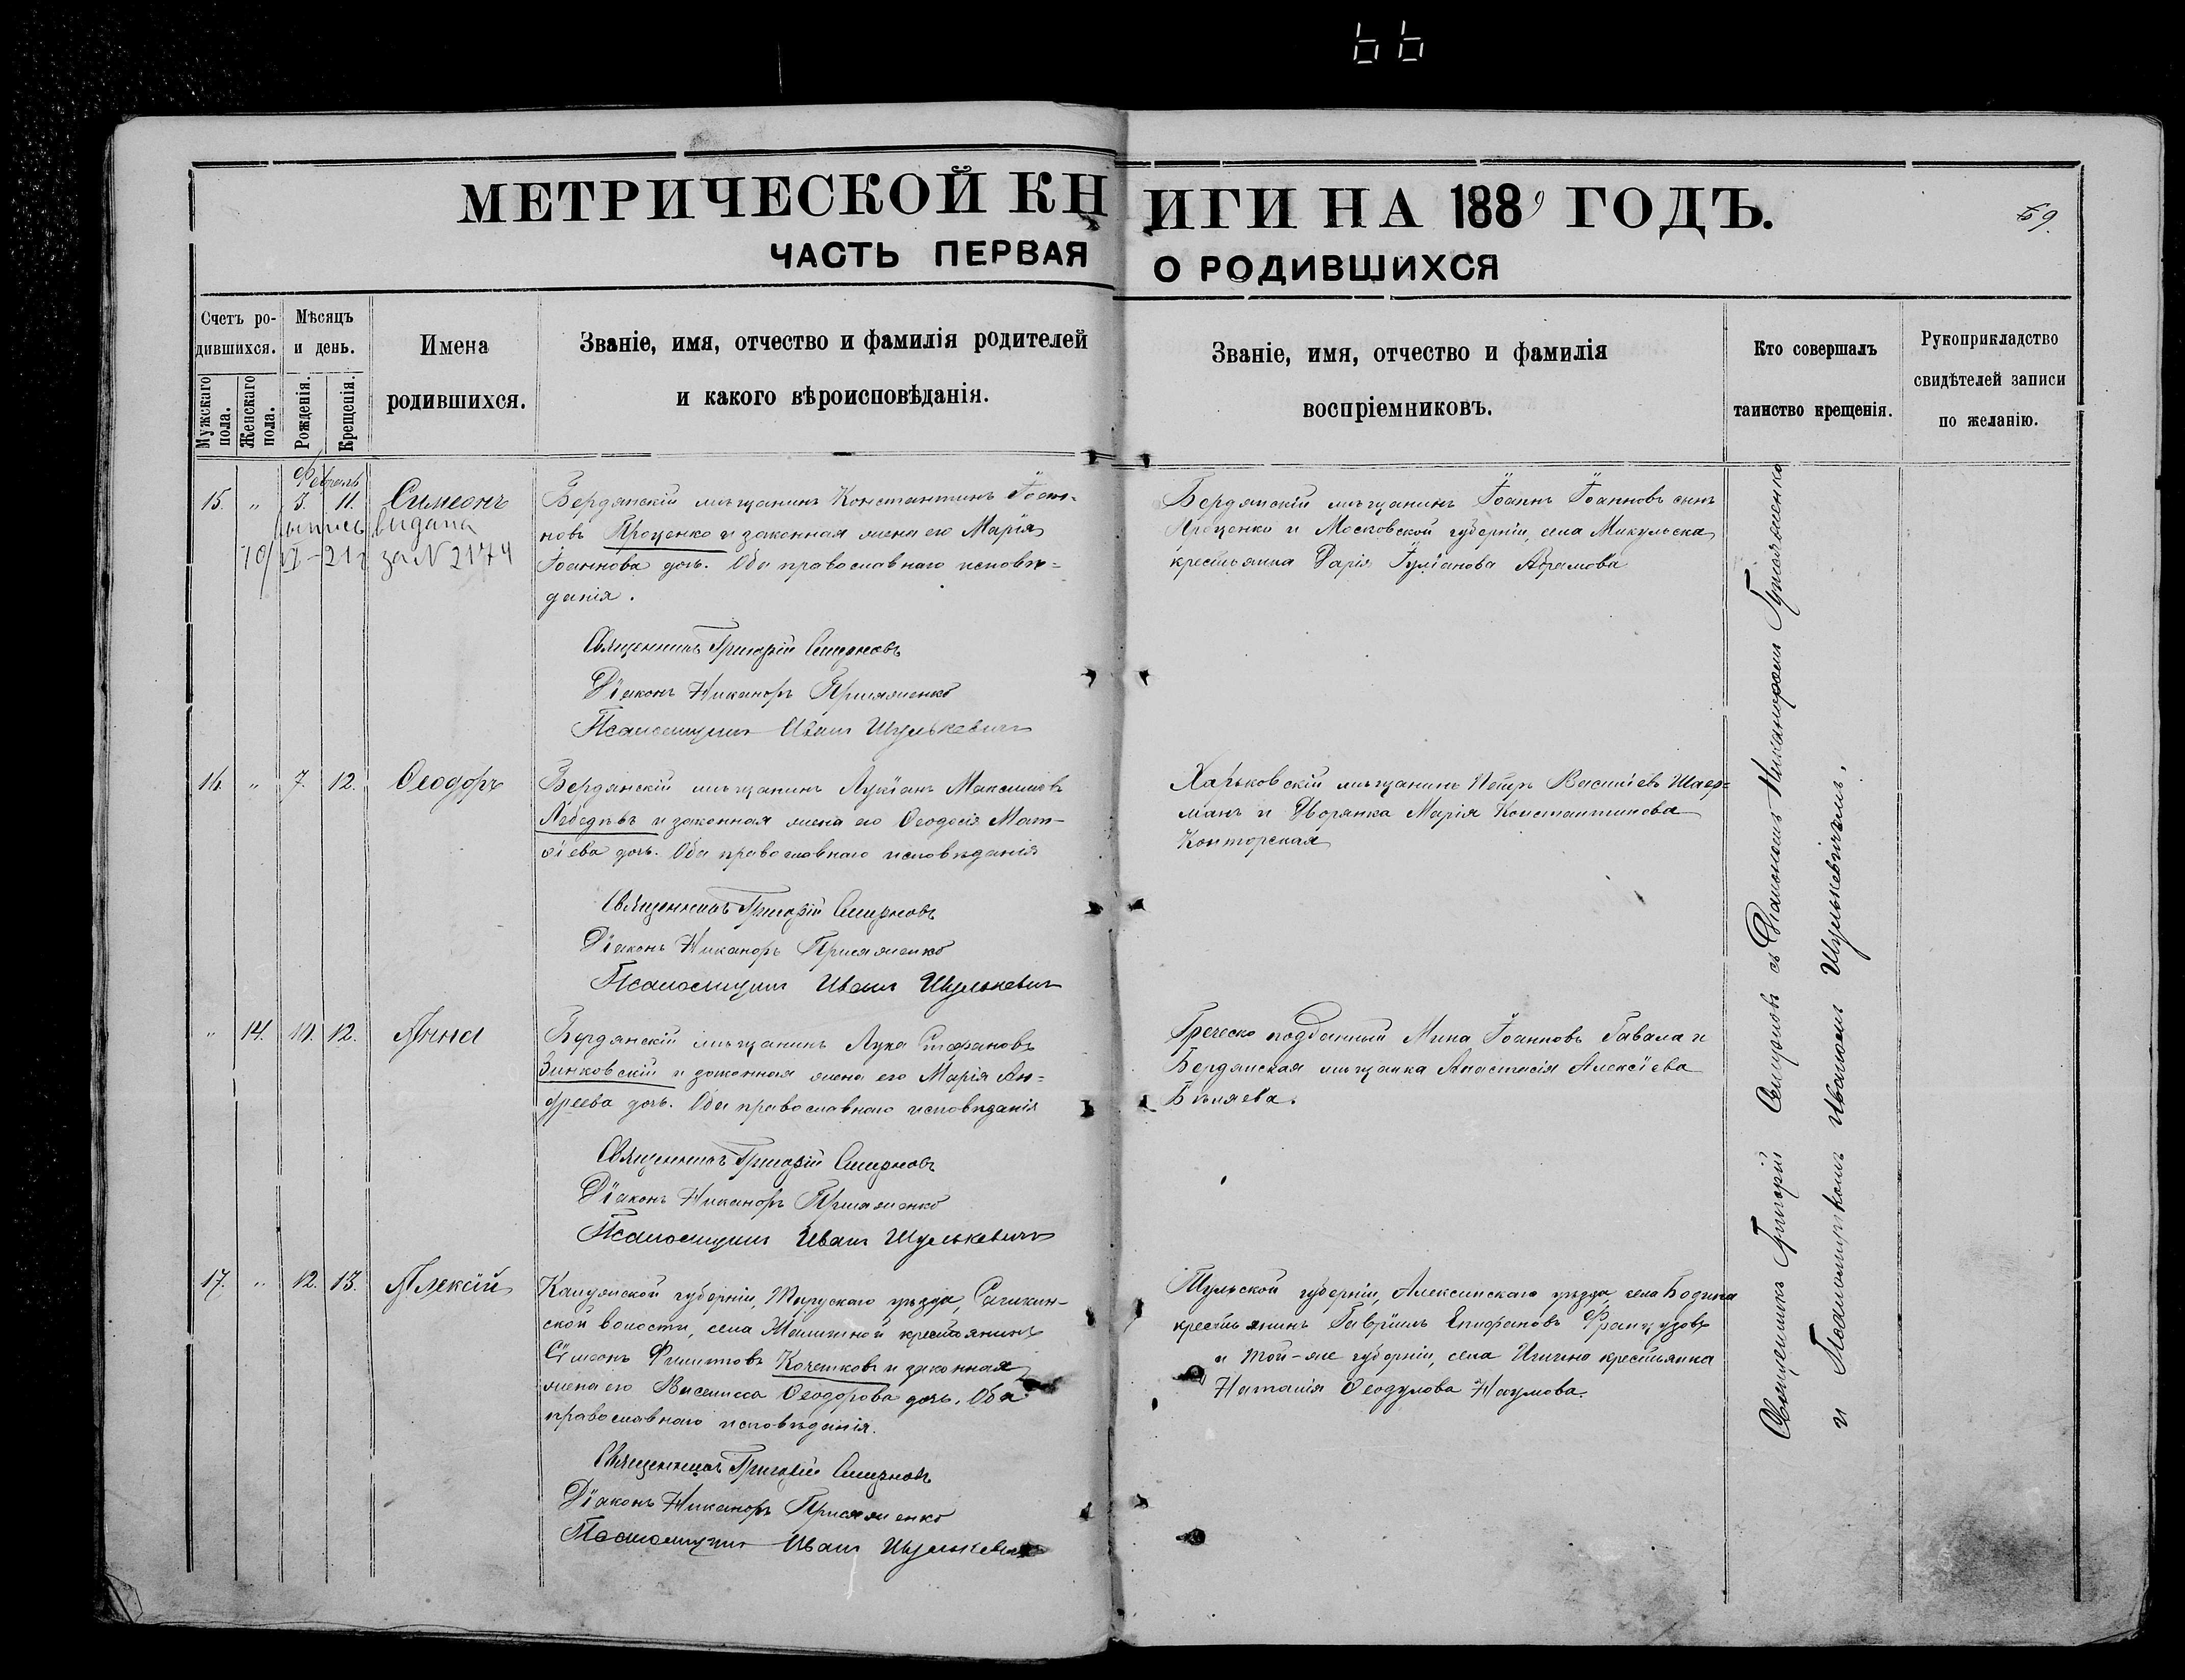 66
МЕТРИЧЕСКОЙ КНИГИ НА 1889 ГОДЪ.
59.
ЧАСТЬ ПЕРВАЯ О РОДИВШИХСЯ
Счетъ ро-
дившихся.
Мужскаго пола.
Женскаго пола.
Мѣсяцъ
и день.
Рожденія.
Крещенія.
Имена
родившихся.
Званіе, имя, отчество и фамилія родителей
и какого вѣроисповѣданія.
Званіе, имя, отчество и фамилія
воспріемниковъ.
Кто совершалъ
таинство крещенія.
Рукоприкладство
свидѣтелей записи
по желанію.
Февраль
15. " 3. 11. Симеонъ
выпись видана
10/VI-21г за N 2174
Бердянскій мѣщанинъ Константинъ Іоан-
новъ Проценко и законная жена его Марія
Іоаннова дочь. Оба православнаго исповѣ-
данія.
Священникъ Григорій Смирновъ
Діаконъ Никаноръ Присяженко
Псаломщикъ Иванъ Шулькевичъ
Бердянскій мѣщанинъ Іоаннъ Іоанновъ сынъ
Проценко и Московской губерніи, села Микульска
крестьянка Дарія Іуліанова Абрамова
16. " 7. 12. Ѳеодоръ
Бердянскій мѣщанинъ Лукіанъ Максимовъ
Лебедѣвъ и законная жена его Ѳеодосія Мат-
ѳіева дочь. Оба православнаго исповѣданія
Священникъ Григорій Смирновъ
Діаконъ Никаноръ Присяженко
Псаломщикъ Иванъ Шулькевичъ
Харьковскій мѣщанинъ Петръ Васильевъ Шаер-
манъ и Дворянка Марія Константинова
Конторская
" 14. 10. 12. Анна
Бердянскій мѣщанинъ Лука Стефановъ
Зинковскій и законная жена его Марія Ан-
дреева дочь. Оба православнаго исповѣданія
Священникъ Григорій Смирновъ
Діаконъ Никаноръ Присяженко
Псаломщикъ Иванъ Шулькевичъ
Греческо подданный Мина Іоанновъ Гавала и
Бердянская мѣщанка Анастасія Алексіева
Бѣляева.
17. " 12. 13. Алексій
Калужской губерніи, Тарускаго уѣзда,
ской волости, села крестьянинъ
Сѵмеонъ Филиповъ Кочешковъ и законная
жена его Василисса Ѳеодорова дочь. Оба
православнаго исповѣданія.
Священникъ Григорій Смирновъ
Діаконъ Никаноръ Присяженко
Псаломщикъ Иванъ Шулькевичъ
Тульской губерніи, Алексинскаго уѣзда, села Бодина
крестьянинъ Гавріилъ Епифановъ Французовъ
и той-же губерніи, села крестьянка
Наталія Ѳеодулова Наумова.
Священникъ Григорій Смирновъ съ Діакономъ Никаноромъ Присяженко
и Псаломщикомъ Иваномъ Шулькевичемъ.